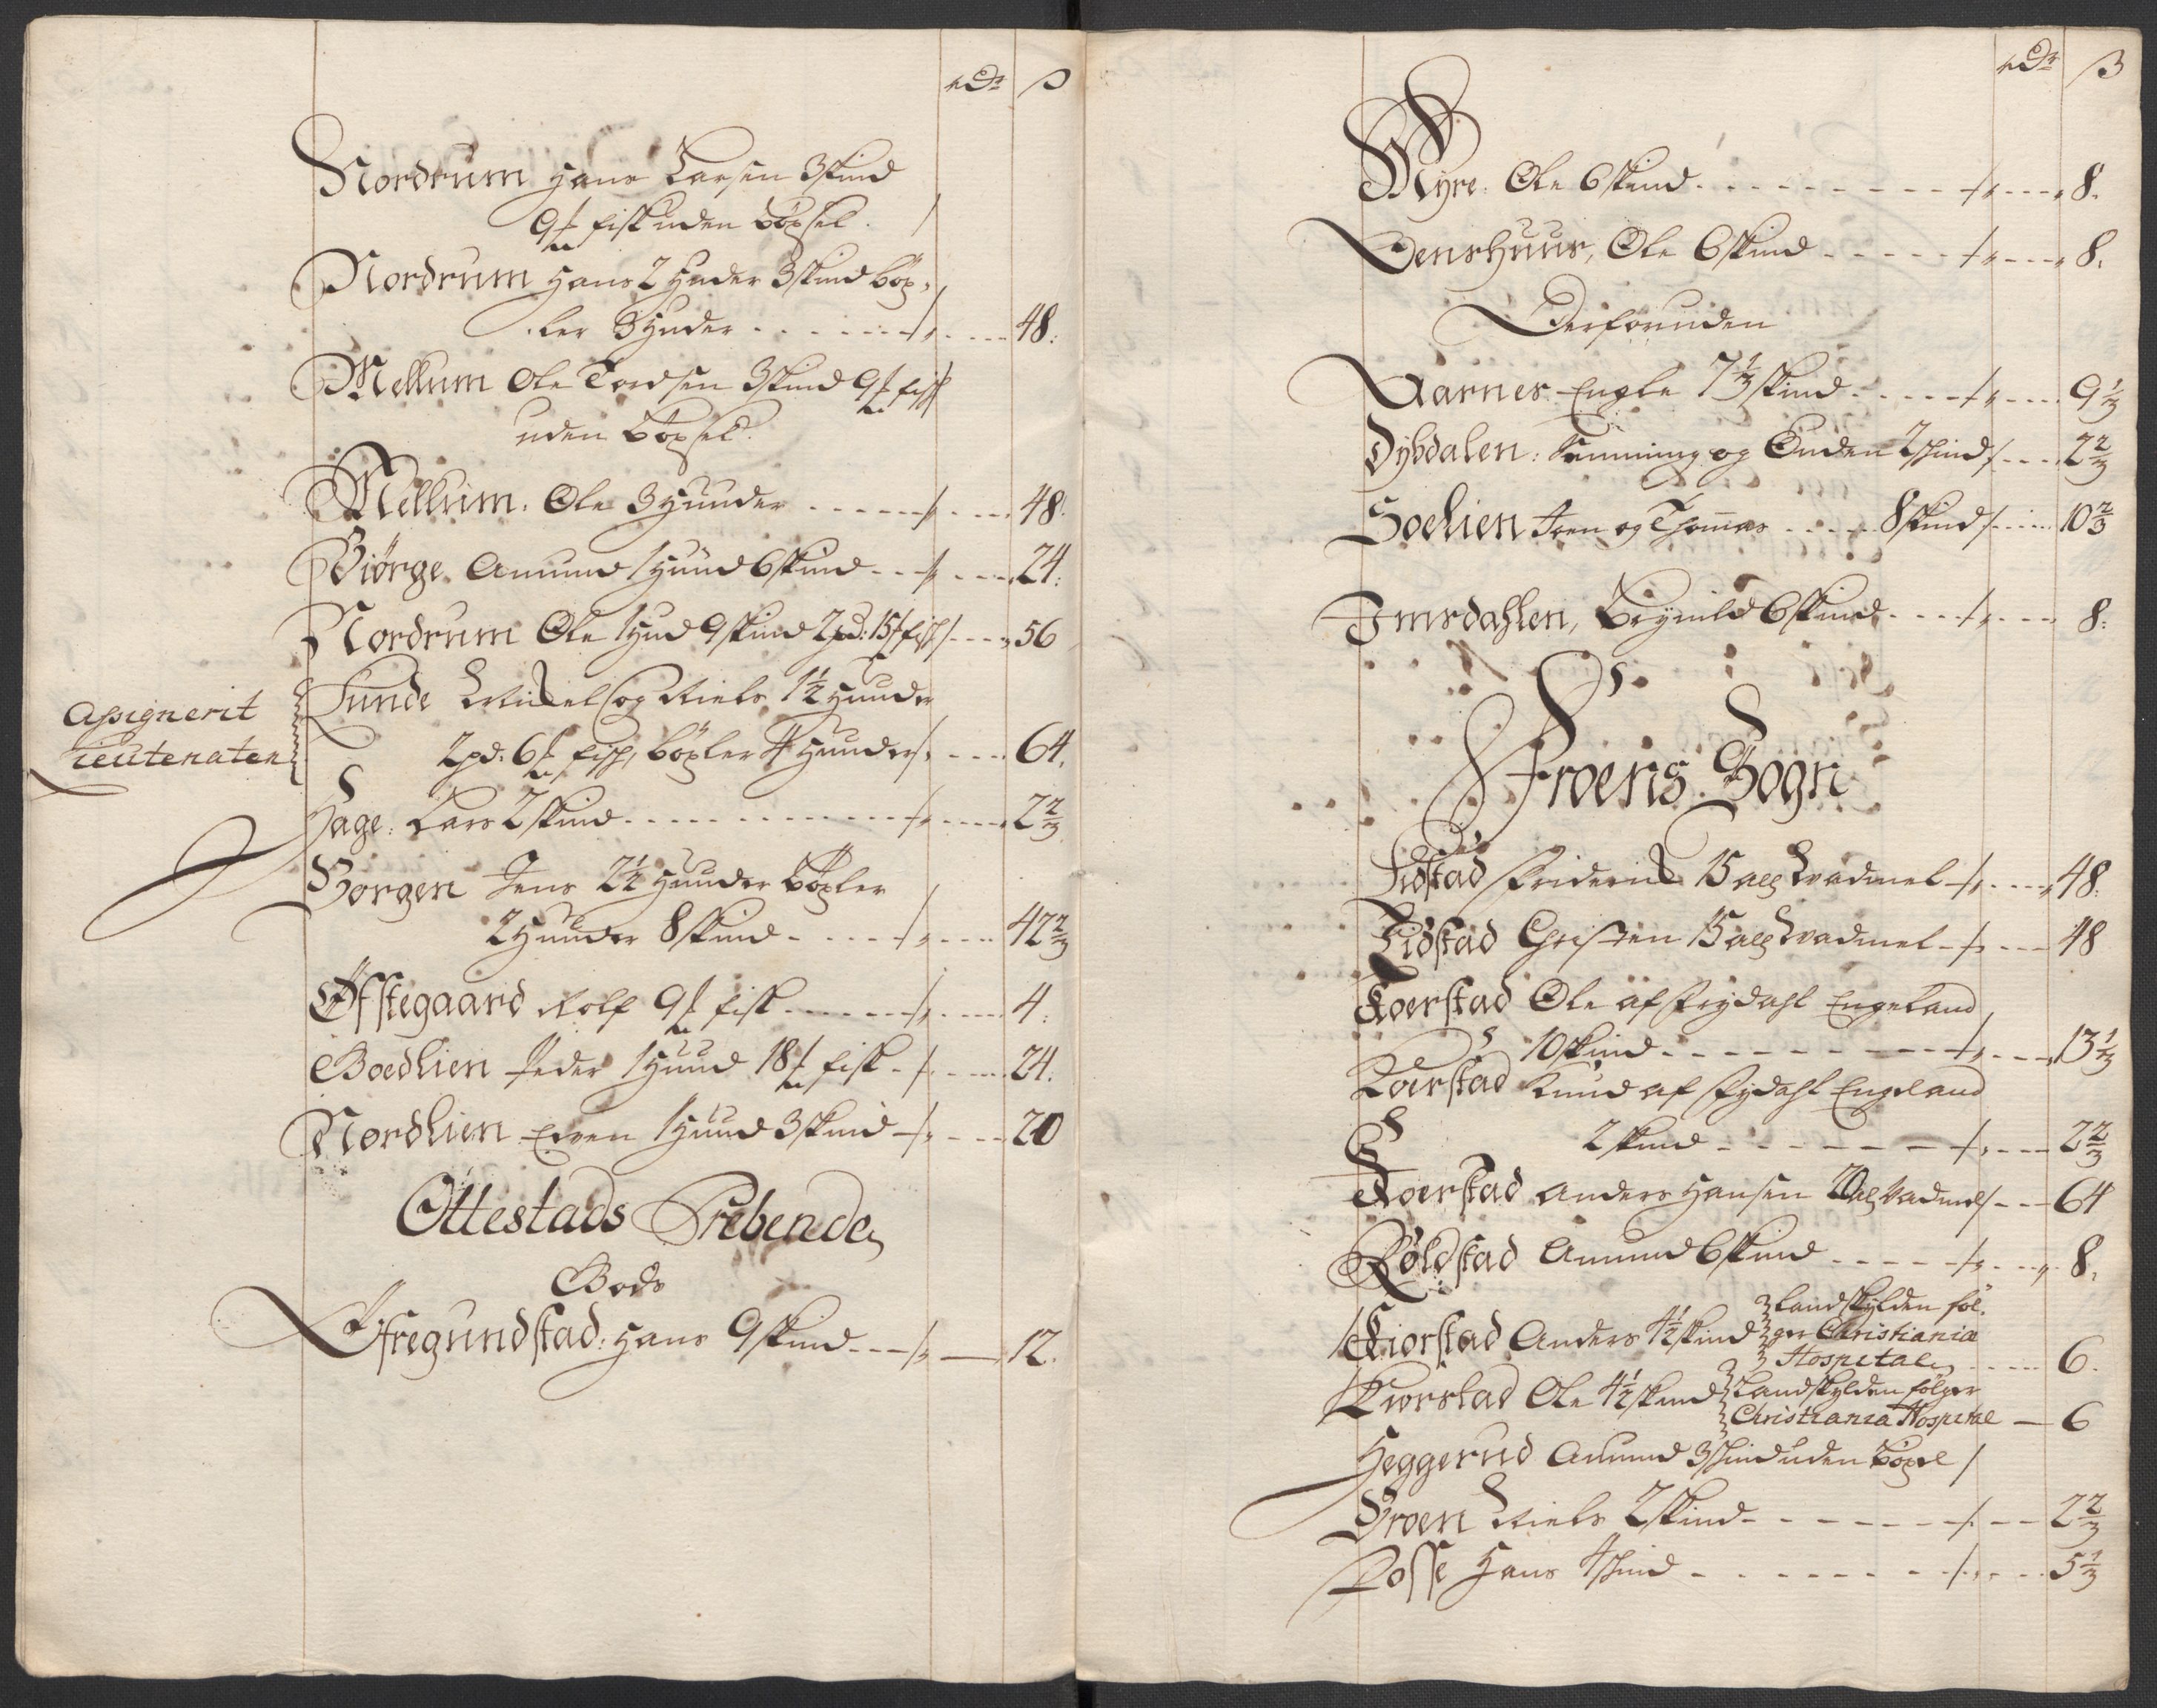 rdr ß
Nordrum Hans Larsen 3 skind
9 ℔ fisk uden böxsel.
Nordrum Hans 2 Huder 3 skind böx-
ler 3 Huder - - - 48.
Mellum Ole Tordsen 3 skind 9 ℔ fisk
uden böxsel.
Mellum. Ole 3 Huuder - - - 48.
Biörge Amund 1 Huud 6 skind - - - 24.
Nordrum Ole 1 Hud 9 skind 2 pd: 15 ℔ fisk - - - 56
Assignerit
Lieutenaten
Sunde og Niels 1½ Huuder
2 pd: 6 ℔ fisk, böxler 4 Huuder - - - 64.
Hage: Lars 2 skind - - - 2 2/3
Borgen Jens 2½ Huuder böxler
2 Huuder 8 skind - - - 42 2/3
Øfstegaard Rolf 9 ℔ fisk - - - 4.
Boedlien Peder 1 Huud 18 ℔ fisk - - - 24.
Nordlien Even 1 Huud 3 skind - - - 20
Ottestads Prebende
Gods
Ofregundstad: Hans 9 skind - - - 12.
rdr ß
Myre. Ole 6 skind - - - 8.
Jenshuus, Ole 6 skind - - - 8.
Derforuden
Aarnes Engle 7 1/3 skind - - - 9 1/3
Dybdalen: Hemming og Enden 2 skind - - - 2 2/3
Soelien Joen og Thomas - - - 8 skind - - - 10 2/3
Imsdahlen, Brynild 6 skind - - - 8.
Froens Sogn
Lidstad Friderick 15 al Wadmel - - - 48.
Lidstad Christen 15 al Wadmel - - - 48
Koerstad Ole af Frydahl Engeland
10 skind - - - 13 1/3
Koerstad Knud af Frydahl Engeland
2 skind - - - 2 2/3
Koerstad Anders Hansen 20 al Vadmel - - - 64
Röldstad Amund 6 skind - - - 8.
Kiorstad Anders 4½ skind Landskylden föl-
ger Christiania
Hospital - - - 6.
Kiorstad Ole 4½ skind Landskylden fölger
Christiania Hospital — 6
Heggerud Amund 3 skind uden böxel
Groen Niels 2 skind - - - 2 2/3
Losse Hans 4 skind - - - 5 1/3